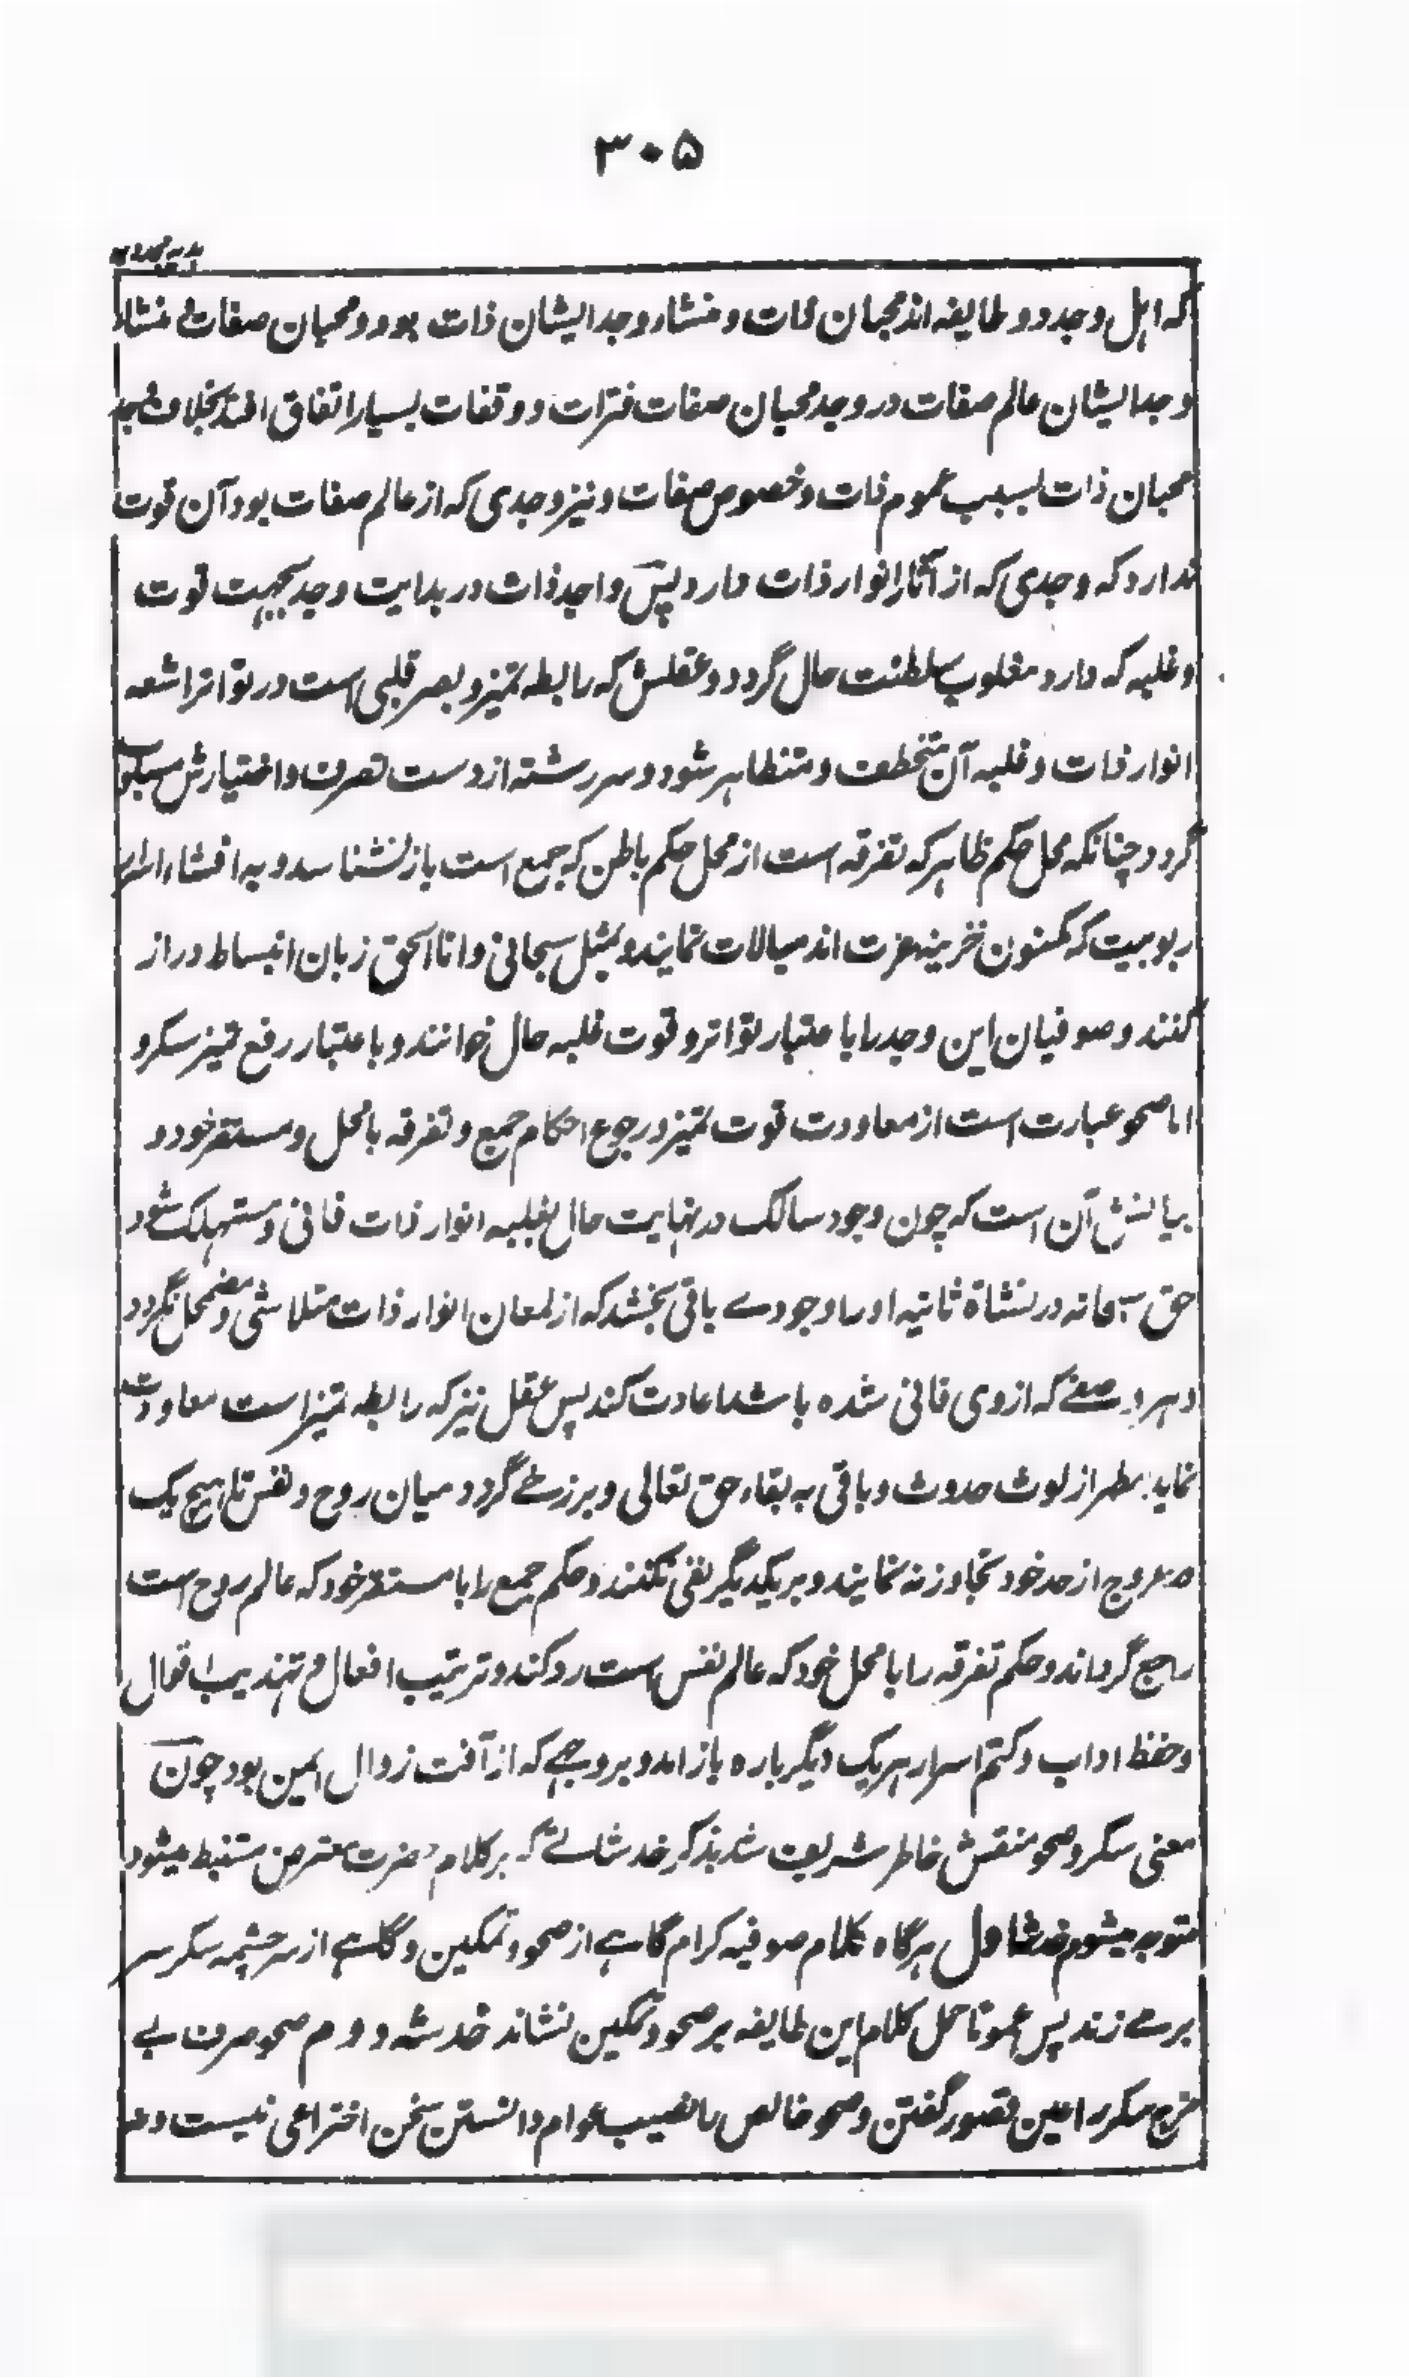 ۳۰۵
که اہل وجد دو طایفه اند محبان ذات و منشاء وجد ایشان ذات بود و محبان صفات و منشاء
وجد ایشان عالم صفات در وجد محبان صفات فترات و وقفات بسیار اتفاق افتد بخلاف وجد
محبان ذات بسبب عموم ذات و خصوص صفات و نیز وجدی که از عالم صفات بود آن قوت
ندارد که وجدی که از آثار انوار ذات دارد پس واجد ذات در بدایت وجد بجهت قوت
و غلبه که دارد مغلوب سلطنت حال گردد و عقلش که رابطه تمیز و بصر قلبی است در تواتر اشعه
انوار ذات و غلبه آن متخطف و متنظاہر شود و سر رشته از دست تصرف و اختیارش مسلوب
گردد چنانکه محل حکم ظاہر که تفرقه است از محل حکم باطن که جمع است باز نشناسد و به افشاء اسرار
ربوبیت که مکنون خزینه عزت اند مبالات نمایند و بمثل سبحانی و انا الحق زبان انبساط دراز
کنند و صوفیان این وجد را با عتبار تواتر و قوت غلبه حال خوانند و باعتبار رفع تمیز سکر و
اما صحو عبارت است از معاودت قوت تمیز و رجوع احکام جمع و تفرقه با محل و مستقر خود و
بیانش آن است که چون وجود سالک در نہایت حال بغلبه انوار ذات فانی و مستہلک شود
حق سبحانه در نشاة ثانیه او را وجودے باقی بخشد که از لمعان انوار ذات متلاشی و مضمحل نگردد
و ہر وصفے که از وی فانی شده باشد اعادت کند پس عقل نیز که رابطه تمیز است معاودت
نماید مطہر از لوث حدوث و باقی به بقاء حق تعالی و برزخے گردد میان روح و نفس تا ہیچ یک
در عروج از حد خود تجاوز نه نمایند و بر یکدیگر نفی نکنند و حکم جمع را با مستقر خود که عالم روح است
راجع گرداند و حکم تفرقه را با محل خود که عالم نفس است رد کند و ترتیب افعال و تہذیب اقوال
و حفظ اداب و کتم اسرار ہر یک دیگر باره باز امد و بر وجہے که از آفت زوال ایمن بود چون
معنی سکر و صحو منقش خاطر شریف شد بذکر خدشاتے که بر کلام حضرت معترض مستنبط میشود
متوجه میشوم خدشه اول ہر گاه کلام صوفیه کرام گاہے از صحو و تمکین و گاہے از سر چشمه سکر سر
برمے زند پس عموماً حمل کلام این طایفه بر صحو و تمکین نشاند خدشه دوم صحو صرف بے
مزج سکر را عین قصور گفتن و صحو خالص را نصیب عوام دانستن سخن اختراعی نیست و